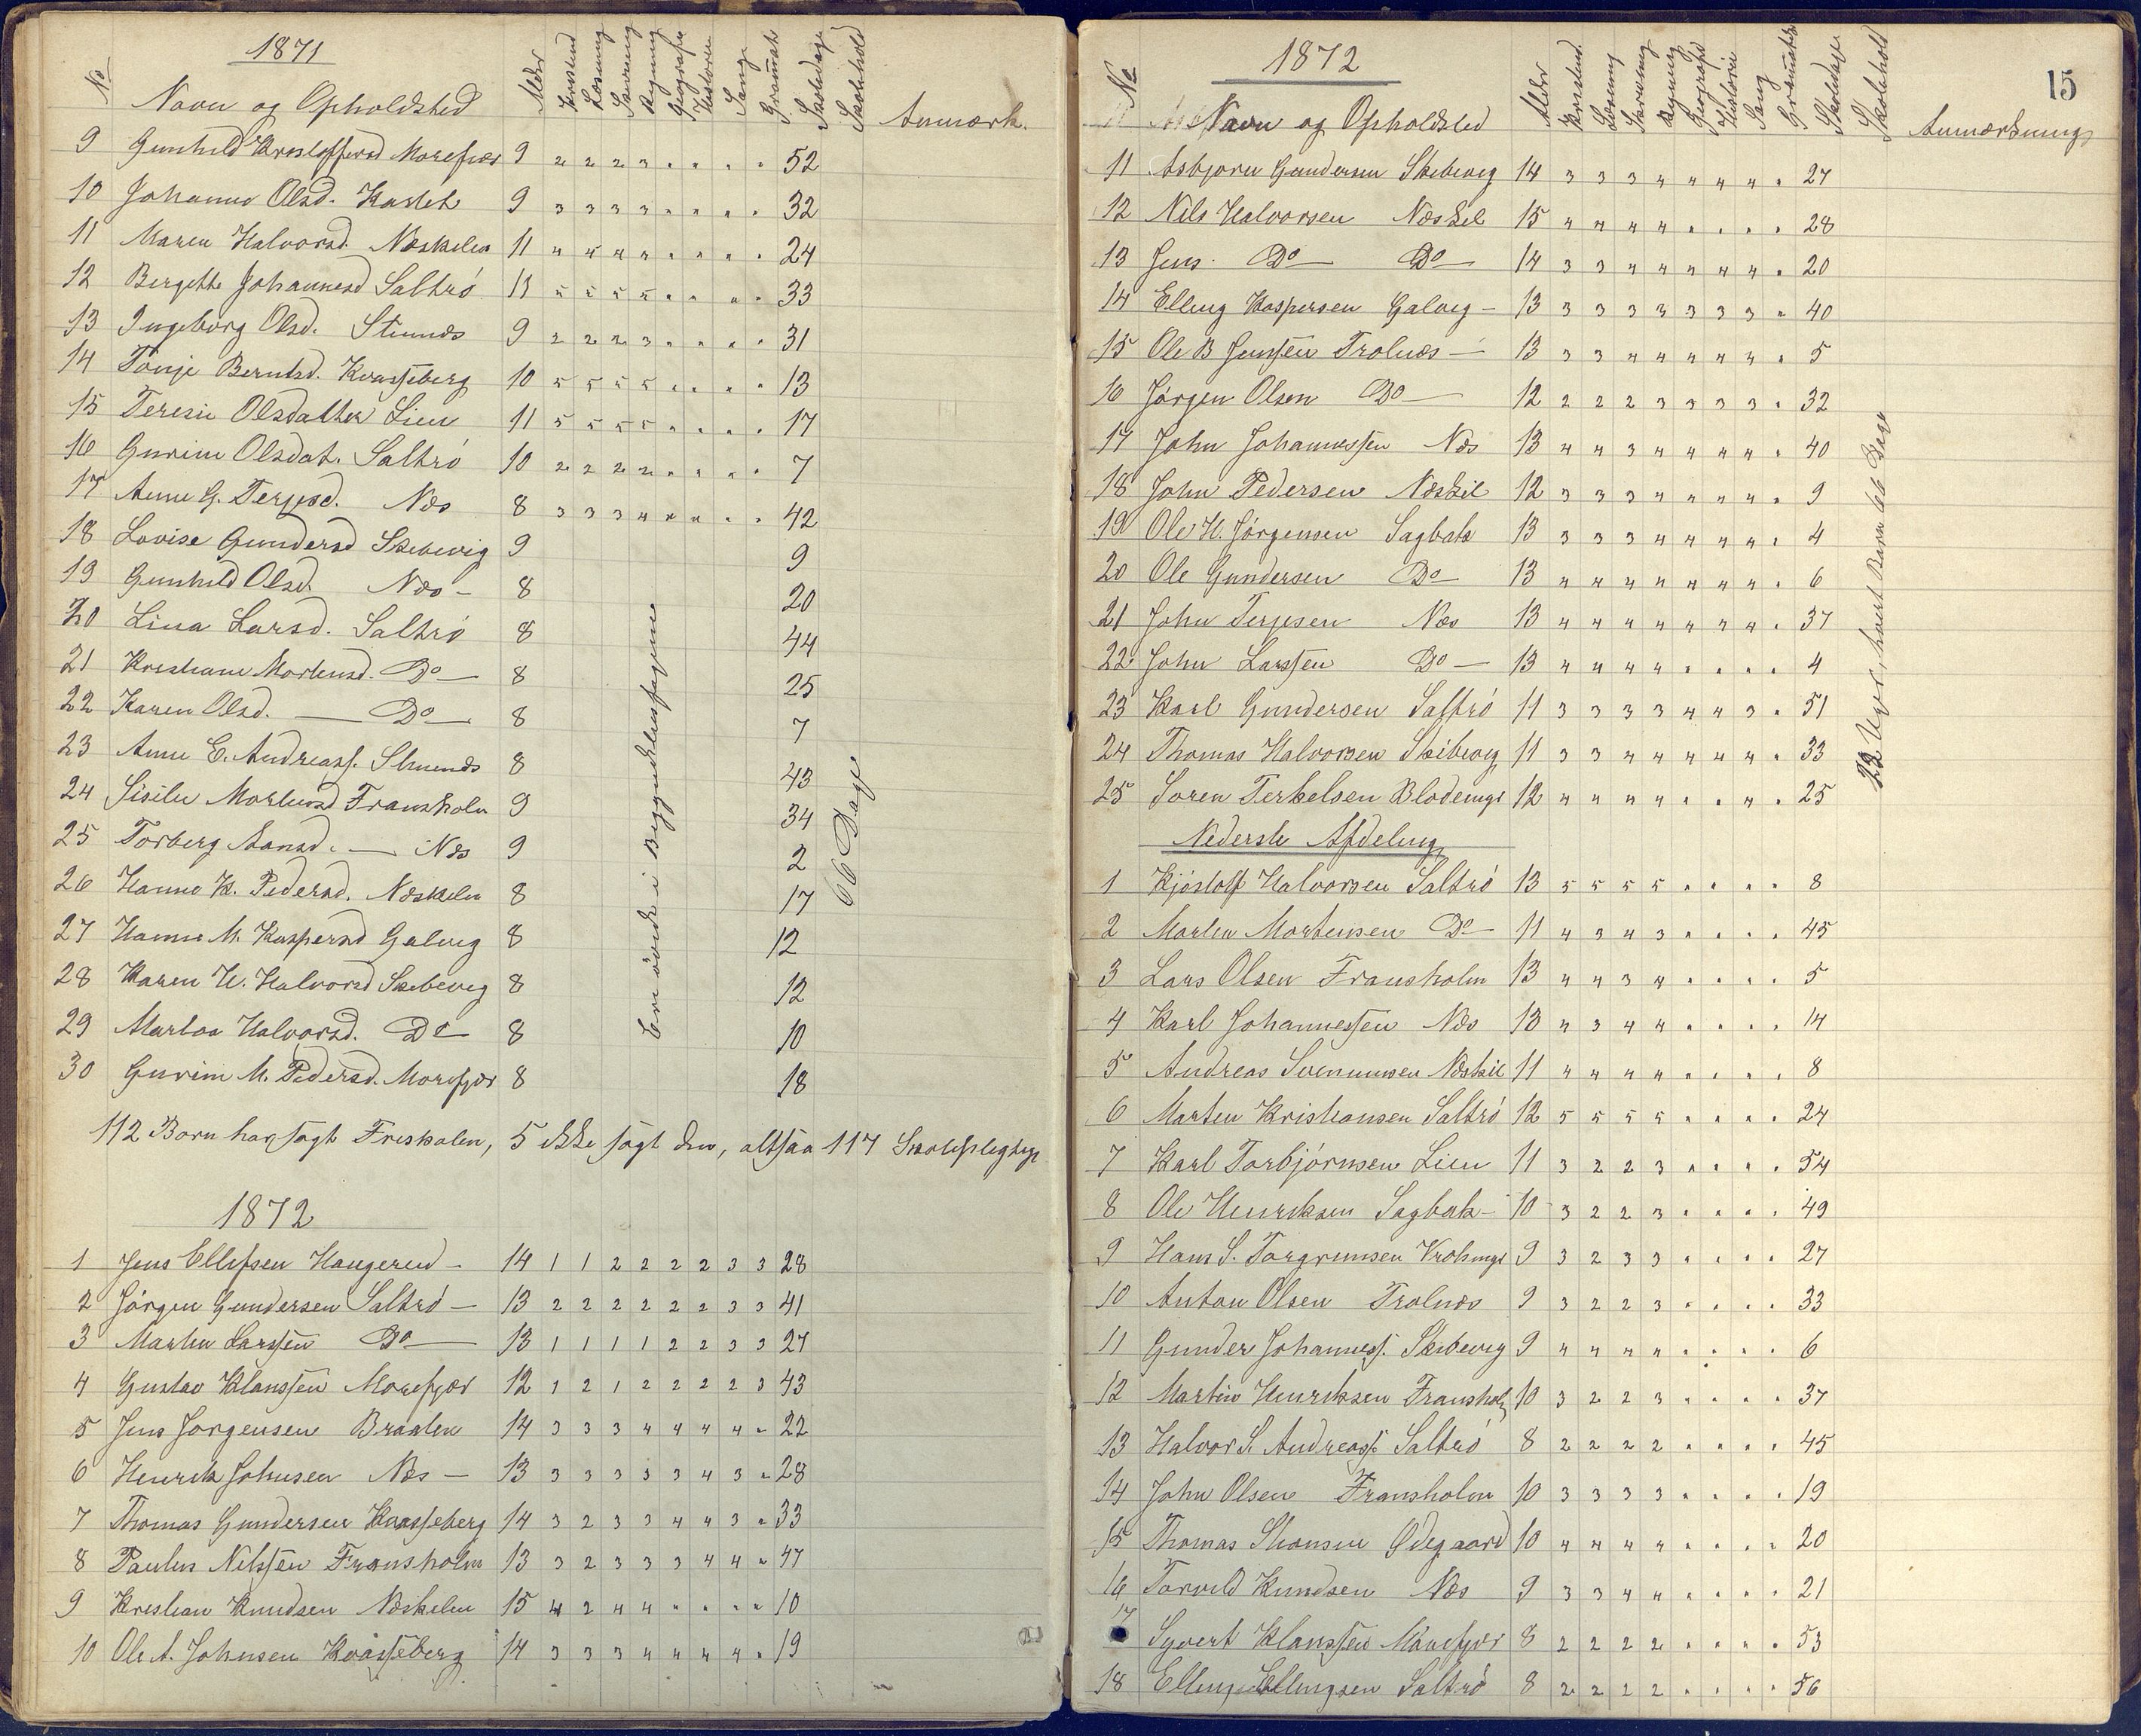 1871
No Navn og Opholdsted Alder Kristend Læsning Skrivning Regning Geografi Historie Sang Gramatik Skoledage Skolehold Anmærk.
9 Gunhild Kristoffersd Morefjær 9 2 2 2 3 " " " " 52
10 Johanne Olsd. Kastet 9 3 3 3 3 " " " " 32
11 Maren Halvorsd. Næskilen 11 4 4 4 4 " " " " 24
12 Bergitte Johannesd Saltrö 11 5 5 5 5 " " " " 33
13 Ingeborg Olsd. Stuenæs 9 2 2 2 3 " " " " 31
14 Tonje Berntsd. Kvasseberg 10 5 5 5 5 " " " " 13
15 Teresie Olsdatter Lien 11 5 5 5 5 " " " " 17
16 Gurine Olsdat. Saltrö 10 2 2 2 2 " " " " 7
17 Anne G. Terjesd. Næs 8 3 3 3 4 " " " " 42
18 Lovise Gundersd Skibevig 9 9
19 Gunhild Olsd. Næs – 8 20
20 Lina Larsd. Saltrö 8 44
21 Kristiane Mortensd. Do — 8 25
22 Karen Olsd. — Do — 8 7
23 Anne E. Andreass. Stuenæs 8 43
24 Sisilie Mortensd Fransholm 9 34
25 Torberg Aansd. — Næs 9 2
26 Hanne K. Pedersd. Næskilen 8 17
27 Hanne M. Kaspersd Galvig 8 12
28 Karen H. Halvorsd Skibevig 8 12
29 Martea Halvorsd. Do 8 10
30 Gurine M. Pedersd. Morefjær 8 18
Ere övede i Begyndelsesfagene
66 Dage
112 Born har sögt Friskolen, 5 ikke sögt den, altsaa 117 Skolepligtige
1872
1 Jens Ellefsen Haugerud – 14 1 1 2 2 2 2 3 3 28
2 Jörgen Gundersen Saltrö – 13 2 2 2 2 2 2 3 3 41
3 Martin Larssen Do — 13 1 1 1 1 2 2 3 3 27
4 Gustav Klaussen Morefjær 12 1 2 1 2 2 2 2 3 43
5 Jens Jorgensen Braaten 14 3 3 3 4 4 4 4 " 22
6 Henrik Johnsen Næs – 13 3 3 3 3 3 4 3 " 28
7 Thomas Gundersen Kvasseberg 14 3 2 3 3 4 4 3 " 33
8 Paulus Nilssen Fransholm 13 3 2 3 3 3 4 4 " 47
9 Kristian Knudsen Næskilen 15 4 2 4 4 " " " " 10
10 Ole A. Johnsen Kvasseberg 14 3 3 3 4 4 4 4 " 19
15
1872
No Navn og Opholdsted Alder Kristend. Læsning Skrivning Regning Geografi Historie Sang Gramatik Skoledage Skolehold Anmærkning
11 Asbjorn Gundersen Skibevig 14 3 3 3 4 4 4 4 " 27
12 Nils Halvorsen Næskil 15 4 4 4 4 " " " " 28
13 Jens Do — Do — 14 3 3 4 4 4 4 4 " 20
14 Elling Kaspersen Galvig – 13 3 3 3 3 3 3 3 " 40
15 Ole B Jenssen Trolnæs — 13 3 3 4 4 4 4 4 " 5
16 Jörgen Olsen Do — 12 2 2 2 3 3 3 3 " 32
17 John Johannessen Næs 13 4 4 3 4 4 4 4 " 40
18 John Pedersen Næskil 12 3 3 3 4 4 4 4 " 9
19 Ole H. Jörgensen Sagbak 13 3 3 3 4 4 4 4 " 4
20 Ole Gundersen Do — 13 4 4 4 4 4 4 4 " 6
21 John Terjesen Næs 13 4 4 4 4 4 4 4 " 37
22 John Larssen Do — 13 4 4 4 4 " " " " 4
23 Karl Gundersen Saltrö 11 3 3 3 3 4 4 3 " 51
24 Thomas Halvorsen Skibevig 11 3 3 4 4 4 4 4 " 33
25 Soren Terkelsen 12 4 4 4 4 " " 4 " 25
22 Uger, hvert Barn 66 Dage
Nederste Afdeling
1 Kjöstolf Halvorsen Saltrö 13 5 5 5 5 " " " " 8
2 Martin Mortensen Do — 11 4 3 4 3 " " " " 45
3 Lars Olsen Fransholm 13 4 4 3 4 " " " " 5
4 Karl Johannessen Næs 13 4 3 4 4 " " " " 14
5 Andreas Svenumsen Næskil 11 4 4 4 4 " " " " 8
6 Marten Kristiansen Saltrö 12 5 5 5 5 " " " " 24
7 Karl Torbjörnsen Lien 11 3 2 2 3 " " " " 54
8 Ole Henriksen Sagbak – 10 3 2 2 3 " " " " 49
9 Hans S. Torgrimsen 9 3 2 3 3 " " " " 27
10 Anton Olsen Trolnæs 9 3 2 2 3 " " " " 33
11 Gunder Johanness. Skibevig 9 4 4 4 4 " " " " 6
12 Martin Henriksen Fransholm 10 3 2 2 3 " " " " 37
13 Halvor S. Andreass. Saltrö 8 2 2 2 2 " " " " 45
14 John Olsen Fransholm 10 3 3 3 3 " " " " 19
15 Thomas Ødegaard 10 4 4 4 4 " " " " 20
16 Torvild Knudsen Næs 9 3 3 4 4 " " " " 21
17 Syvert Klaussen Morefjær 8 2 2 2 2 " " " " 53
18 Elling Ellingsen Saltrö 8 2 2 2 2 " " " " 56